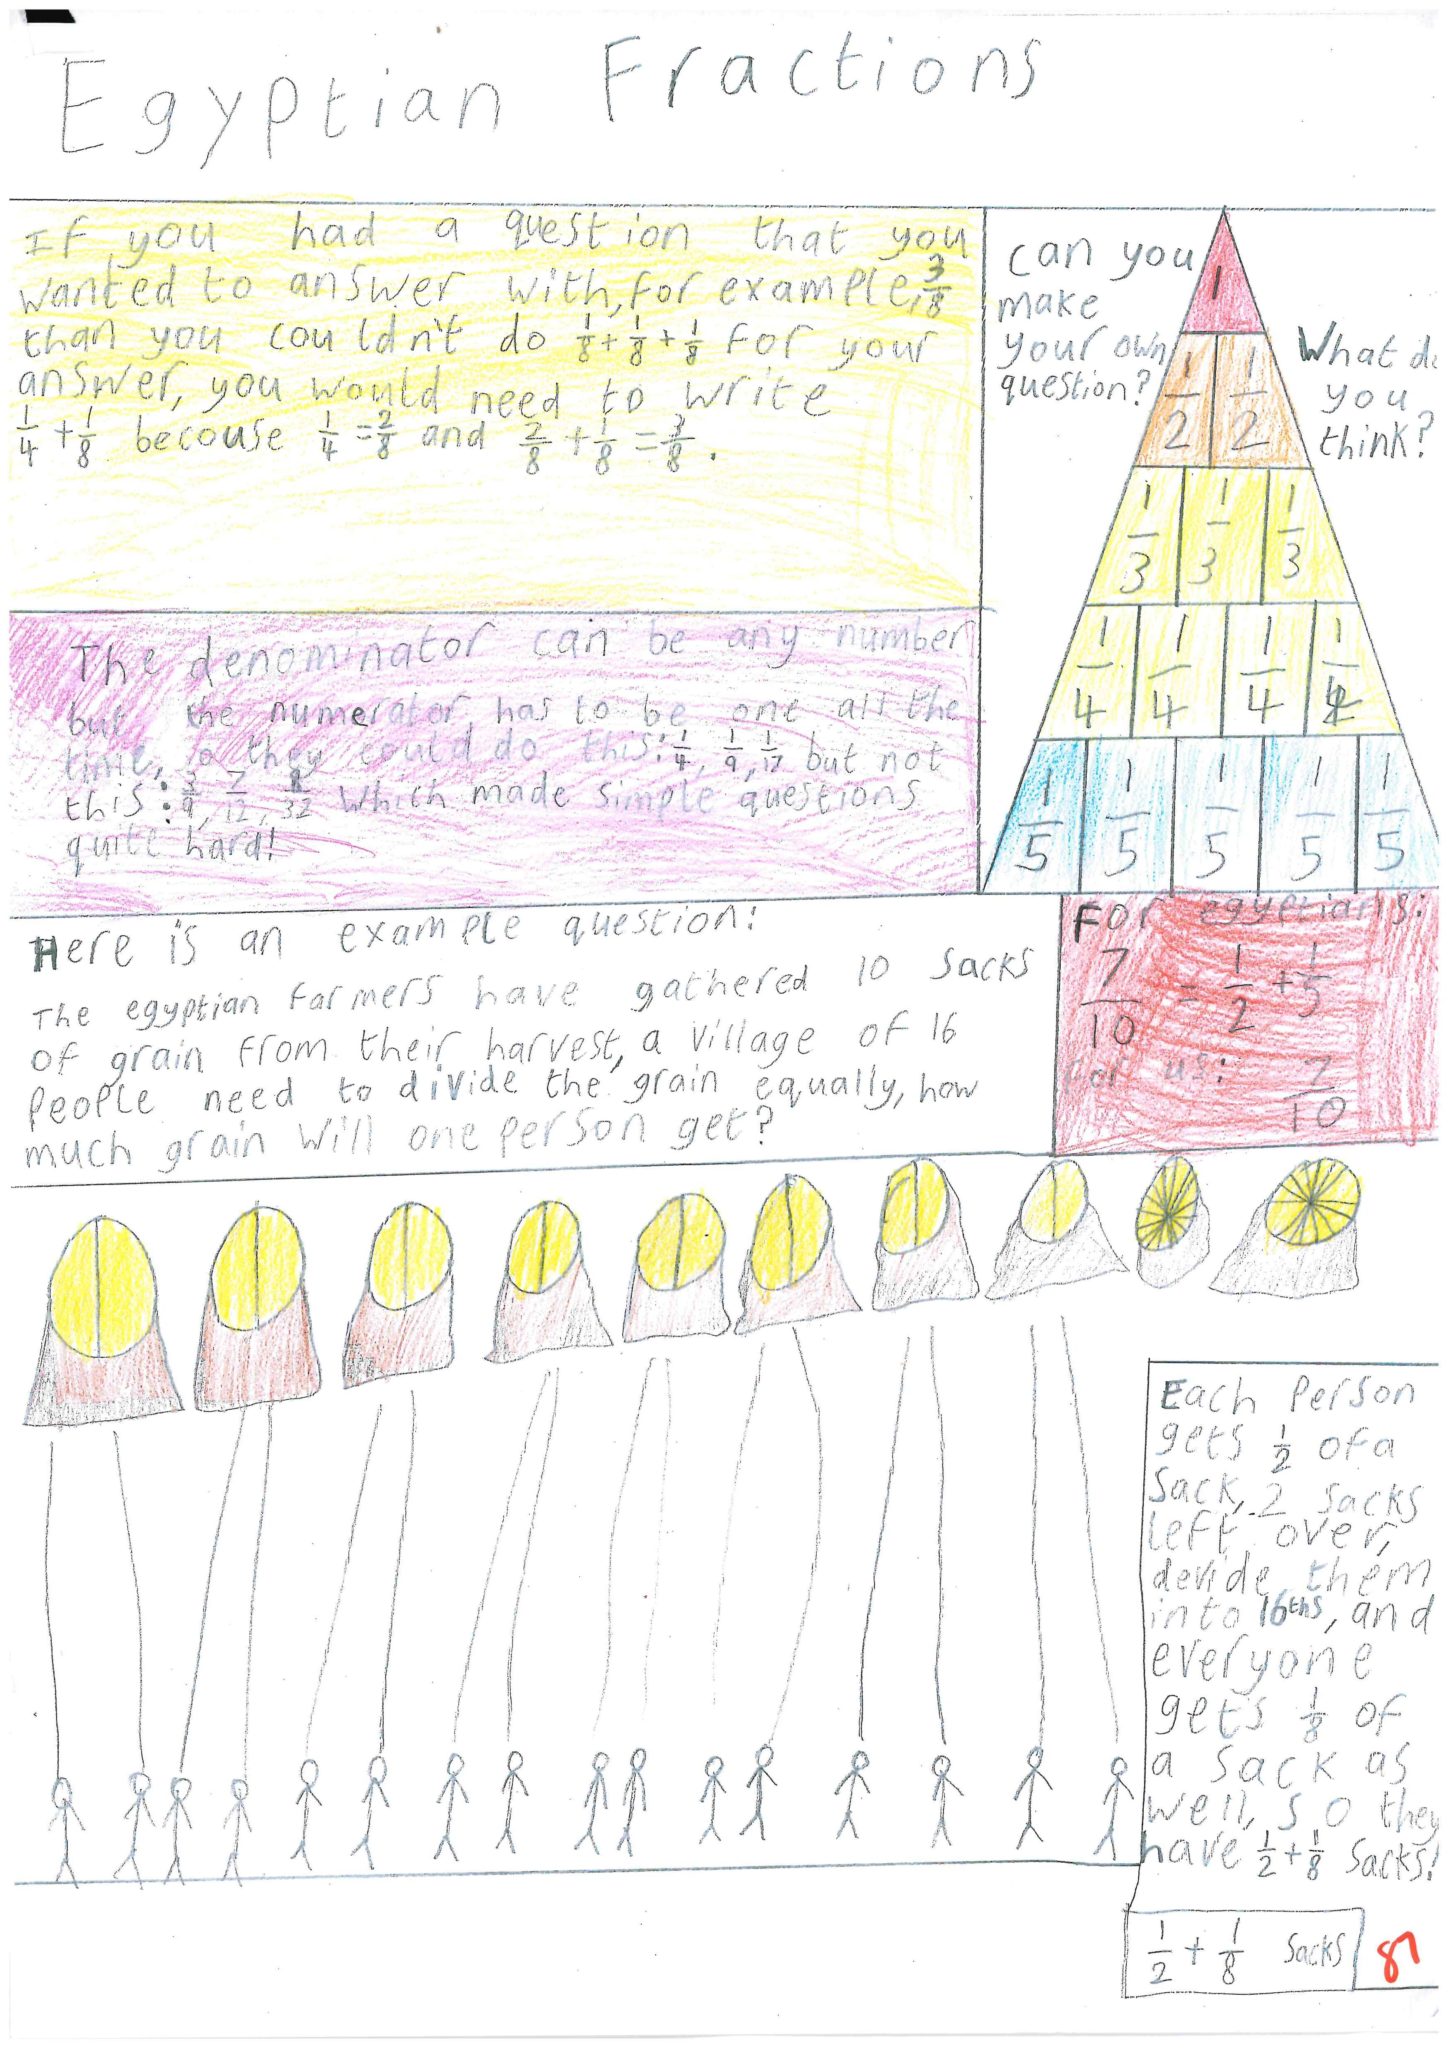 Egyptian Fractions
If you had a question that you
wanted to answer with, for example, 3/8
than you couldn't do 1/8 + 1/8 + 1/8 for your
answer, you would need to write
1/4 + 1/8 becouse 1/4 = 2/8 and 2/8 + 1/8 = 3/8.
can you
make
your own
question?
1
1/2 1/2
1/3 1/3 1/3
1/4 1/4 1/4 1/4
1/5 1/5 1/5 1/5 1/5
What do
you
think?
The denominator can be any number
but the numerator has to be one all the
time, so they could do this: 1/4, 1/9, 1/17 but not
this: 3/9, 7/12, 8/32 which made simple questions
quite hard!
Here is an example question:
The egyptian farmers have gathered 10 sacks
of grain from their harvest, a village of 16
people need to divide the grain equally, how
much grain will one person get?
For egyptians:
7/10 = 1/2 + 1/5
for us: 7/10
Each person
gets 1/2 of a
sack, 2 sacks
left over,
devide them
into 16ths, and
everyone
gets 1/8 of
a sack as
well, so they
have 1/2 + 1/8 sacks!
1/2 + 1/8 sacks
87